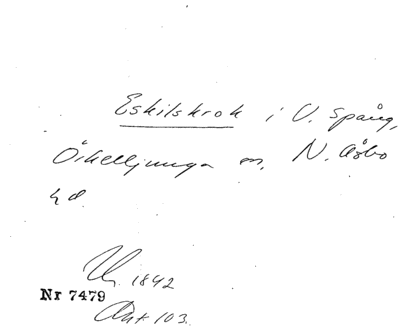 Eskilskrok i V. Spång,
Örkelljunga sn, N. Åsbo
hd.
1842
Nr 7479
Ant 103.